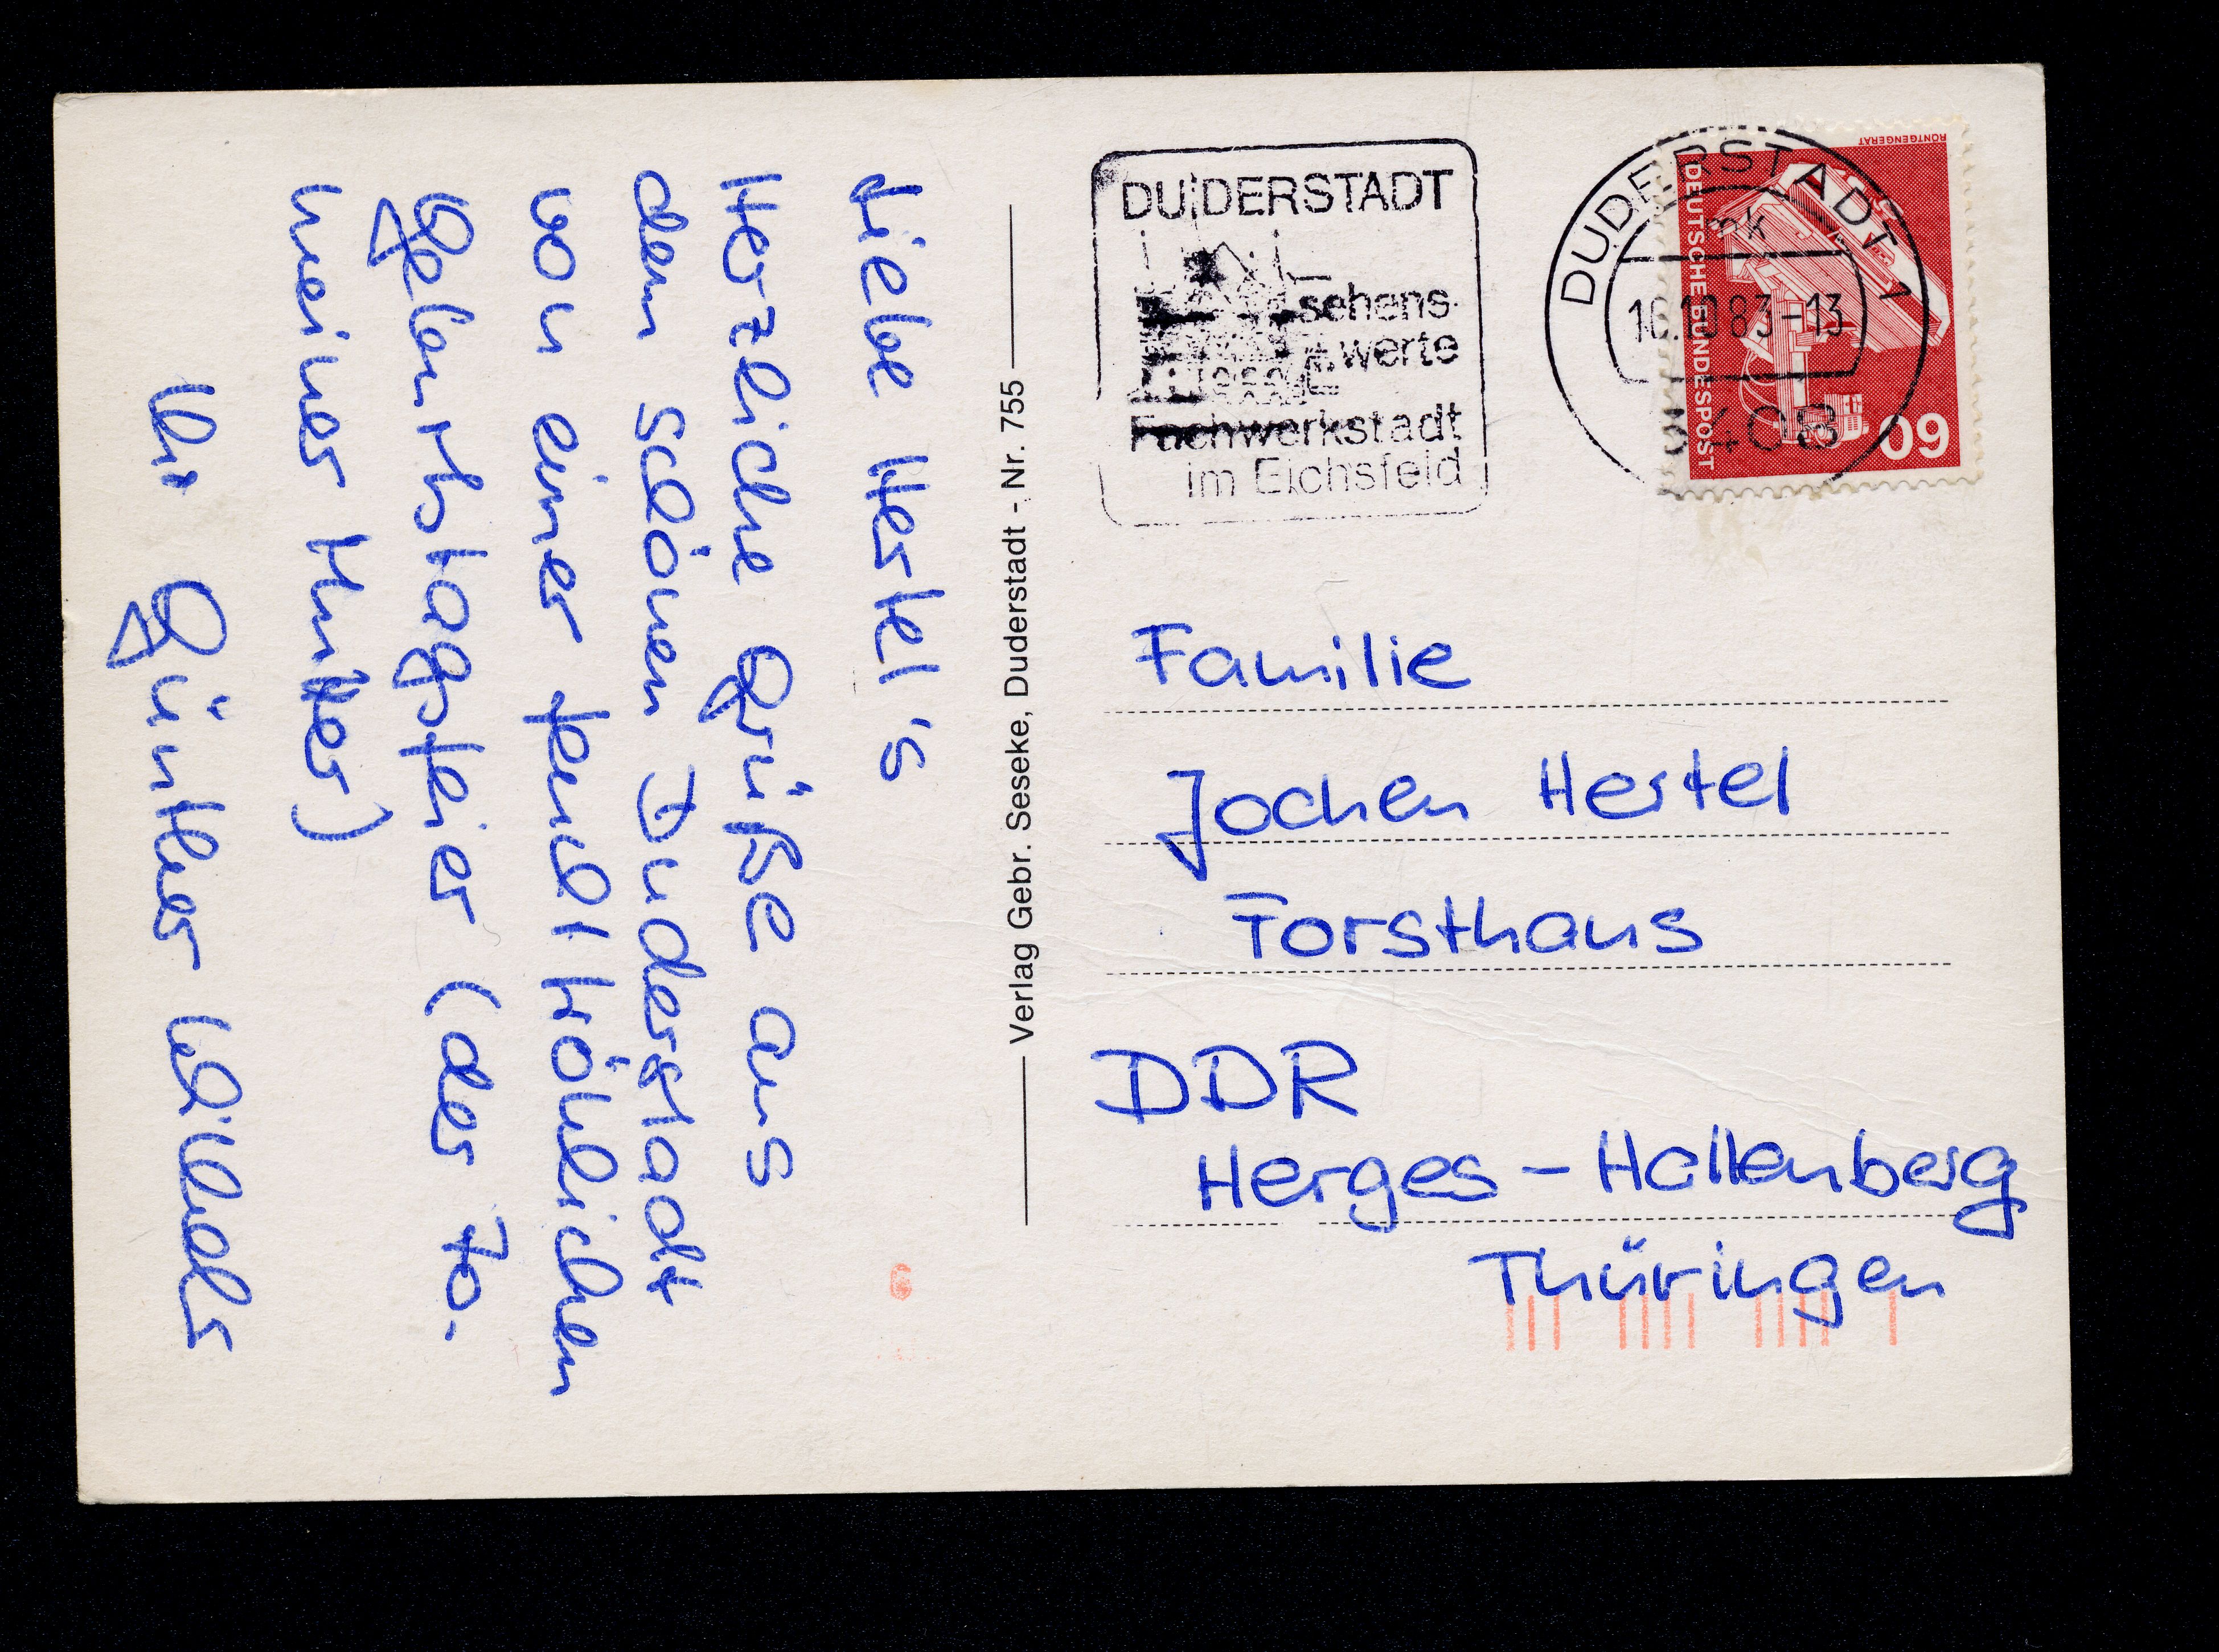 Liebe Hertel's
Herzliche Grüße aus
dem schönen Duderstadt
von einer feucht fröhlichen
Geburtstagsfeier (der 70.
meiner Mutter)
Ihr Günther
Verlag Gebr. Seseke, Duderstadt - Nr. 755
DUDERSTADT
sehens-
werte
Fachwerkstadt
im Eichsfeld
DUDERSTADT 1
mk
16.10.83-13
3408
RÖNTGENGERÄT
DEUTSCHE BUNDESPOST
60
Familie
Jochen Hertel
Forsthaus
DDR
Herges - Hallenberg
Thüringen
6